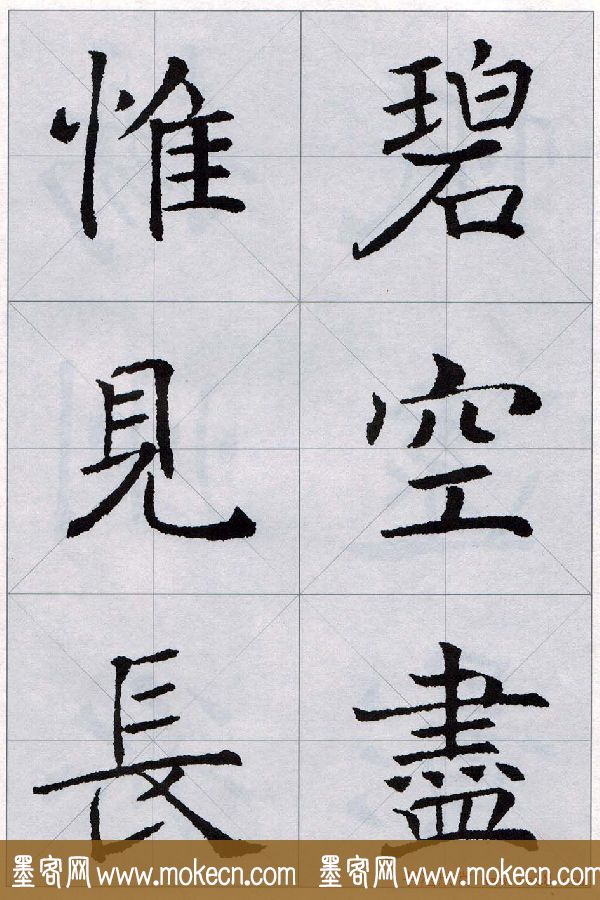 碧空盡
惟見長
墨客网 www.mokecn.com 墨客网 www.mokecn.com